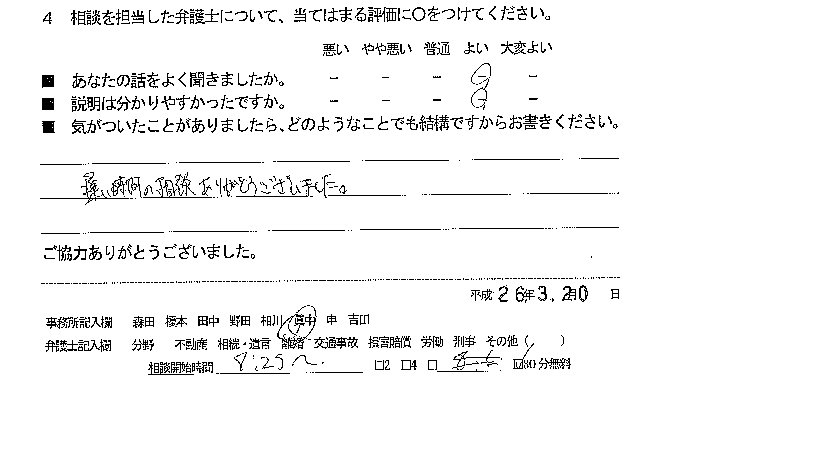 4 相談を担当した弁護士について、当てはまる評価に○をつけてください。
悪い やや悪い 普通 よい 大変よい
■ あなたの話をよく聞きましたか。 － － － － －
■ 説明は分かりやすかったですか。 － － － － －
■ 気がついたことがありましたら、どのようなことでも結構ですからお書きください。
遅い時間の相談ありがとうございました。
ご協力ありがとうございました。
平成26年3.月20日
事務所記入欄 森田 榎本 田中 野田 相川 中 申 吉田
弁護士記入欄 分野 不動産 相続・遺言 離婚 交通事故 損害賠償 労働 刑事 その他( )
相談開始時間 8:25～. □2 □4 □ ☑30分無料